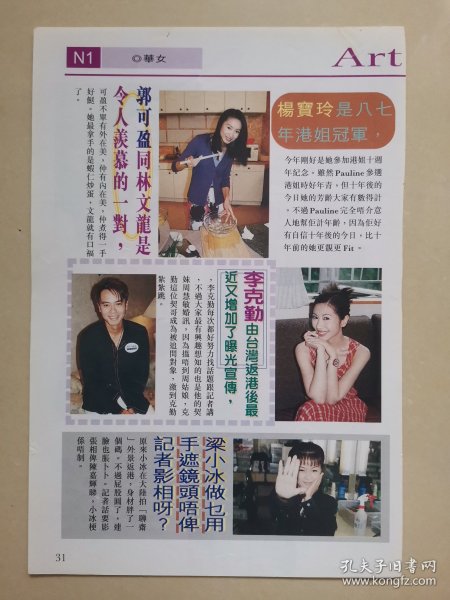 N1
◎華女
Art
郭可盈同林文龍是
令人羨慕的一對，
可盈不單有外在美，仲有內在美，仲煮得一手
好餸。她最拿手的是蝦仁炒蛋，文龍就有口福
了。
楊寶玲是八七
年港姐冠軍，
今年剛好是她參加港姐十週
年紀念。雖然Pauline參選
港姐時好年青，但十年後的
今日她的芳齡大家有數得計
。不過Pauline完全唔介意
人地幫佢計年齡，因為佢好
有自信十年後的今日，比十
年前的她更靚更Fit。
李克勤由台灣返港後最
近又增加了曝光宣傳，
，李克勤每次都好努力找話題跟記者講
，不過大家最有興趣想知的也是他的契
妹周慧敏婚訊，因為搵唔到周姑娘，克
勤這位契哥成為被追問對象，激到克勤
紮紮跳。
梁小冰做乜用
手遮鏡頭唔俾
記者影相呀？
原來小冰在大陸拍「聊齋
」外景返港，身材胖了一
個碼。不過屁股圓了，連
臉也脹卜卜。記者話要影
張相俾陳嘉輝睇，小冰梗
係唔制。
31
孔夫子旧书网
www.kongfz.com